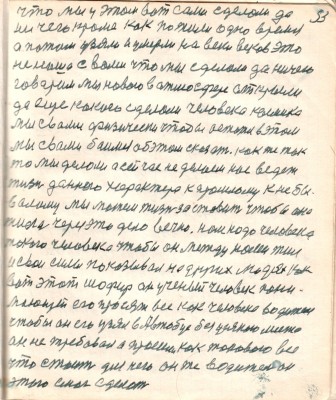 что мы у этом вот сами сделали да
33
ни чего кроме как пожили одно время
а потом узяли и умерли на веки веков это
не наше с вами что мы сделали да ничего
говорим мы нового в атмосфере открыли
да еще какого сделали человека
мы с вами физически чтобы в этом
мы с вами об этом сказать. как же так
то мы делали а сейчас не делаем нас ведет
жизнь данного характера к прошлому к не бы
валому мы можем жизнь заставить чтобы она
через это дело вечно. нам надо человека
такого человека чтобы он между нами жил
и свои силы показывал на других людях как
вот этот шофер он ученый человек пони
его просят все как человека водителя
чтобы он его узял в Автобус без усякого места
он не требовал а просил как такового все
что стоит для него он же водителем
этого смог сделать